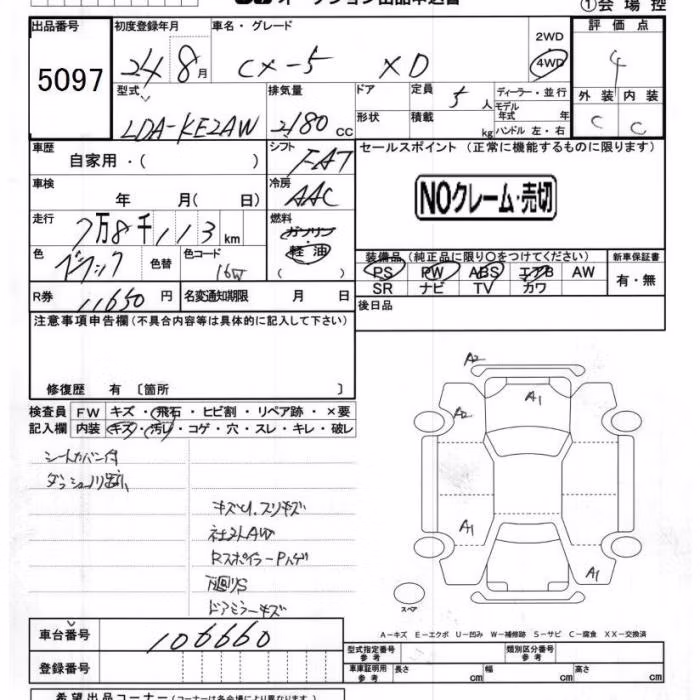 オークション出品申込書
①会場控
出品番号 初度登録年月 車名・グレード 2WD 評価点
5097 24 8月 CX-5 XD 4WD 4
型式 排気量 ドア 定員 ディーラー・並行 外装 内装
LDA-KE2AW 2180 CC 5人 モデル年式 年 C C
形状 積載 kg ハンドル 左・右
車歴 シフト セールスポイント (正常に機能するものに限ります)
自家用・( ) FAT
車検 冷房 NOクレーム・売切
年 月( 日) AAC
走行 燃料
7万8千113km ガソリン
色 色替 色コード 軽油 装備品 (純正品に限り〇をつけてください) 新車保証書
ブラック 16W ( ) PS PW ABS エアB AW 有・無
R券 名変通知期限 SR ナビ TV カワ
11650円 月 日 後日品
注意事項申告欄 (不具合内容等は具体的に記入して下さい)
修復歴 有 〔箇所 〕
検査員 FW キズ・飛石・ヒビ割・リペア跡・×要
記入欄 内装 キズ・汚れ・コゲ・穴・スレ・キレ・破レ
シートカバー付
キズU.スリキズ
社外AW
Rスポイラーハゲ
ドアミラーキズ
A2
A1
A2
A1
A1
スペア
A－キズ E－エクボ U－凹み W－補修跡 S－サビ C－腐食 XX－交換済
車台番号 106660 型式指定番号 参考 類別区分番号 参考
登録番号 車庫証明用 参考 長さ cm 幅 cm 高さ cm
希望出品コーナー (コーナーは各会場により異なります。)